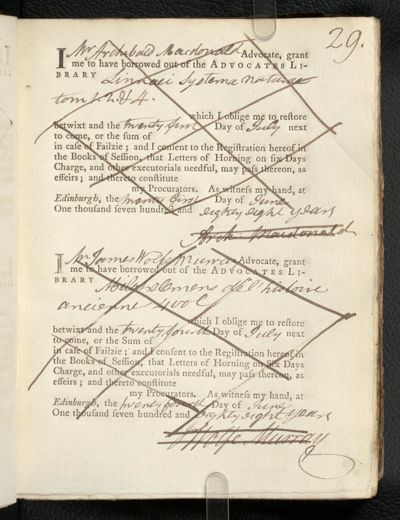 29.
I Mr Archibald Macdonald Advocate, grant
me to have borrowed out of the ADVOCATES LI-
BRARY Linnaei Systema naturae
tom 1. 2. & 4.
which I oblige me to reſtore
betwixt and the twenty first Day of July next
to come, or the ſum of
in caſe of Failzie; and I conſent to the Regiſtration hereof in
the Books of Seſſion, that Letters of Horning on ſix Days
Charge, and other executorials needful, may paſs thereon, as
effeirs; and thereto conſtitute
my Procurators. As witneſs my hand, at
Edinburgh, the twenty first Day of June
One thouſand ſeven hundred and eighty eight years
Arch. Macdonald
I Mr James Wolfe Murray Advocate, grant
me to have borrowed out of the ADVOCATES LI-
BRARY Millot elemens de l'histoire
ancienne 4 vol
which I oblige me to reſtore
betwixt and the twenty fourth Day of July next
to come, or the Sum of
in caſe of Failzie; and I conſent to the Regiſtration hereof in
the Books of Seſſion, that Letters of Horning on Six Days
Charge, and other executorials needful, may paſs thereon, as
effeirs; and thereto conſtitute
my Procurators. As witneſs my hand, at
Edinburgh, the twenty fourth Day of June
One thouſand ſeven hundred and eighty eight years
J Wolfe Murray